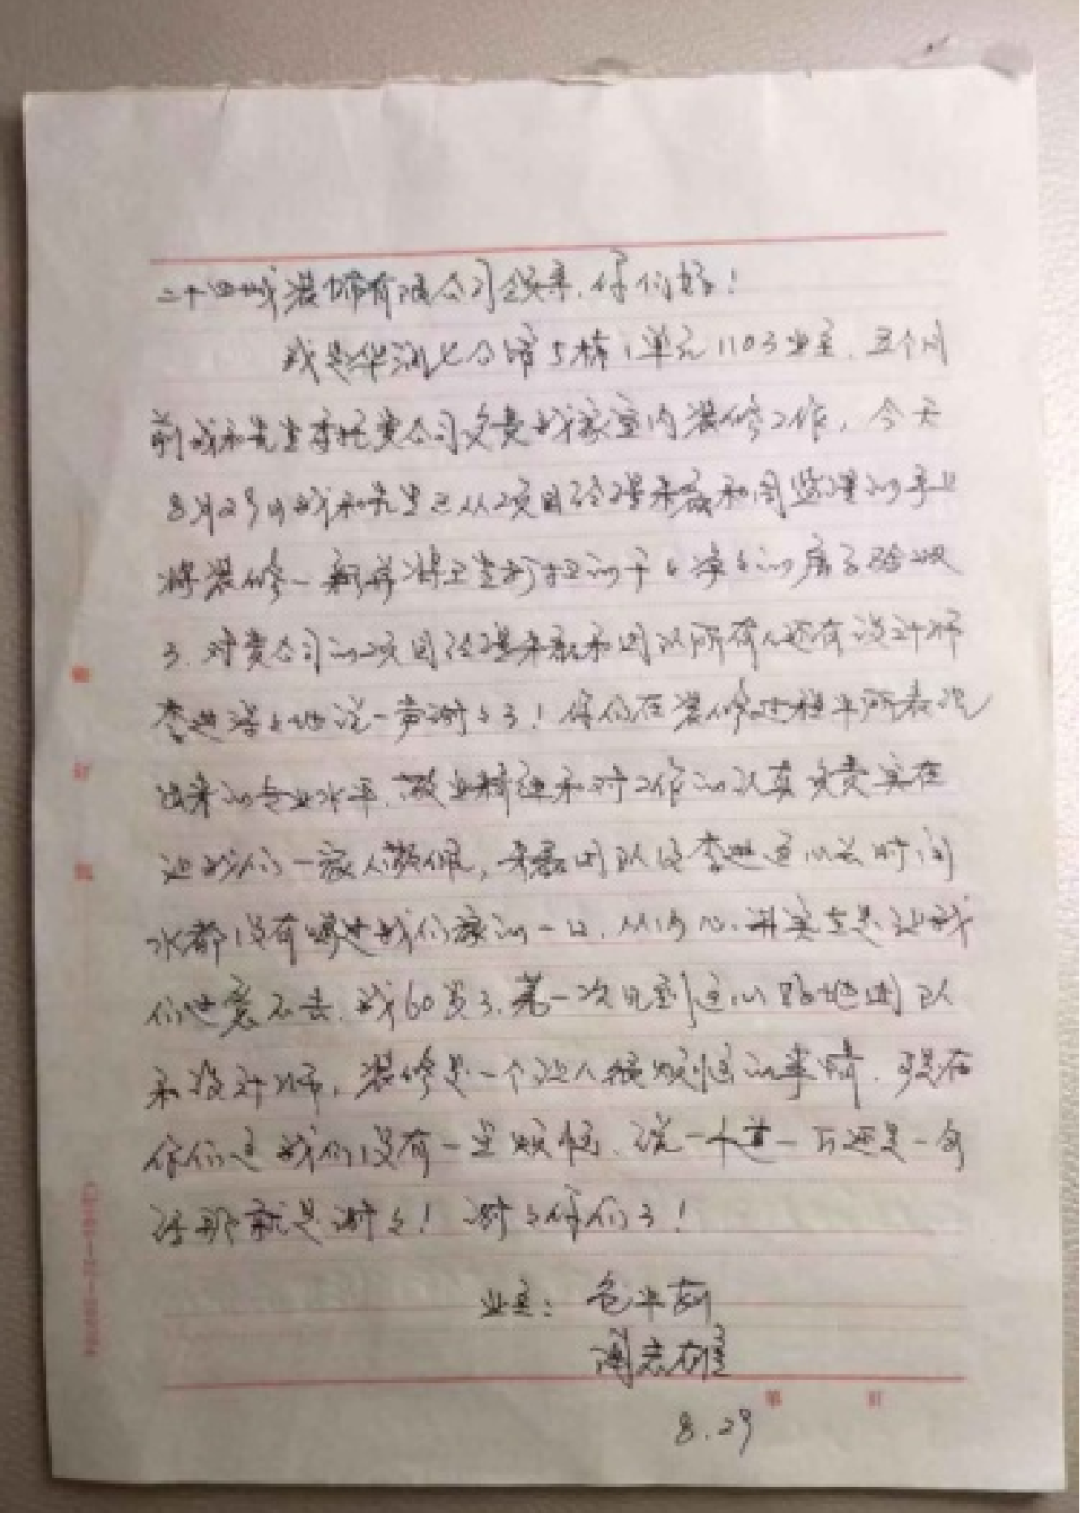 二十四城装饰有限公司领导,你们好!
我是华润七公馆5栋1单元1103业主,五个月
前我和先生委托贵公司负责我家室内装修工作,今天
8月29日我和先生已从项目经理朱磊和周监理的手上
将装修一新并将卫生打扫的干々净々的房子验收
了.对贵公司的项目经理朱磊和团队所有人还有设计师
李进深々地说一声谢々了!你们在装修过程中所表现
出来的专业水平,敬业精神和对工作的认真负责实在
让我们一家人敬佩,朱磊团队及李进这么长时间
水都没有喝过我们家的一口,从内心讲实在是让我
们过意不去.我60岁了,第一次见到这么好的团队
和设计师,装修是一个让人很烦恼的事情,可是在
你们这我们没有一点烦恼,说一千道一万还是一句
话那就是谢々!谢々你们了!
业主:
8.29
第 页